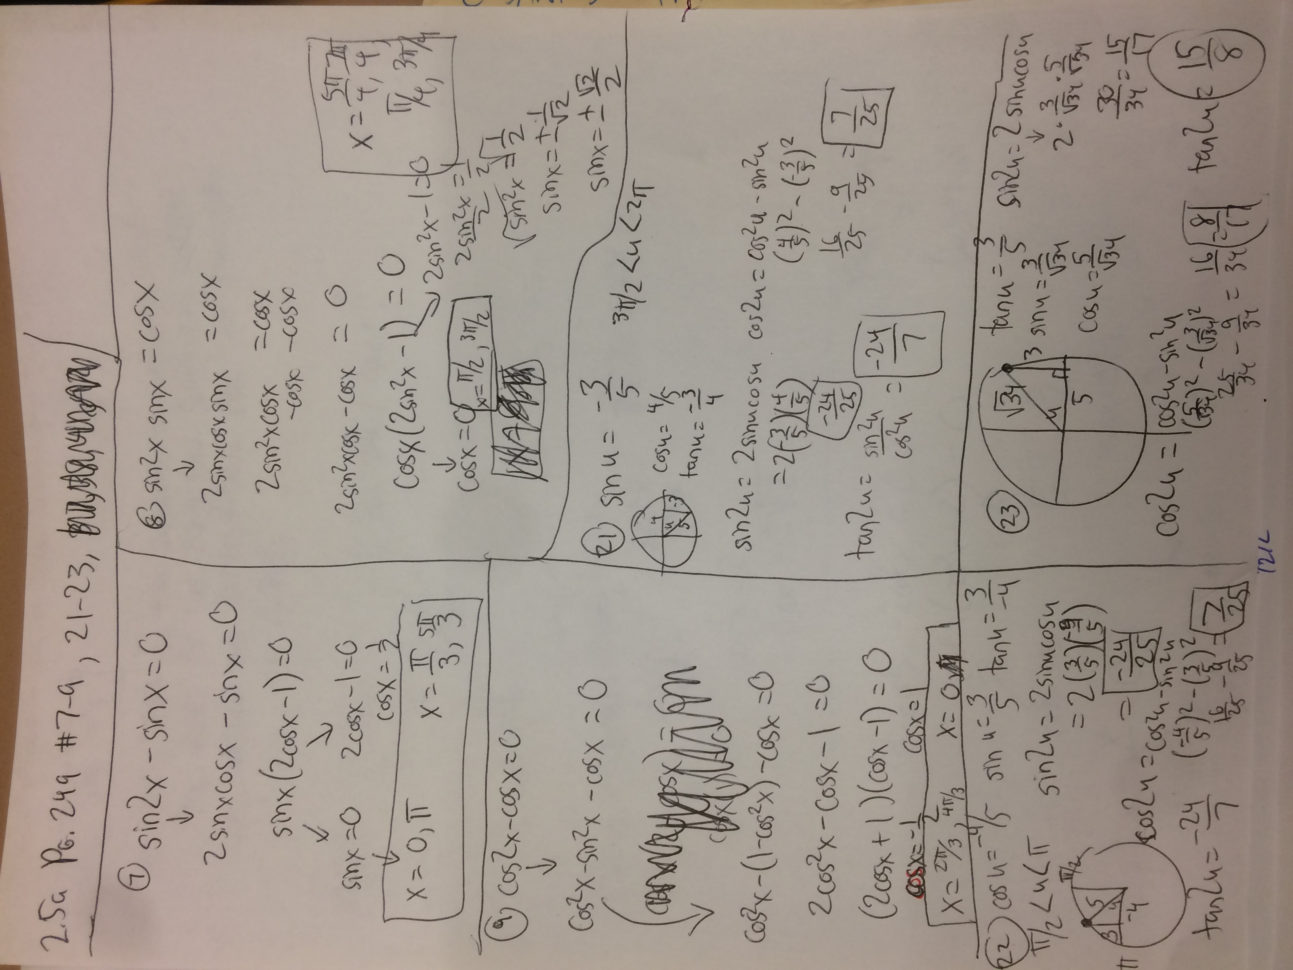 2.5a Pg. 249 #7-9, 21-23,
⑦ sin2x - sinx = 0
↓
2sinxcosx - sinx = 0
sinx(2cosx - 1) = 0
↙ ↘
sinx = 0 2cosx - 1 = 0
cosx = 1/2
x = 0, π x = π/3, 5π/3
⑧ sin2x sinx = cosx
↓
2sinxcosx sinx = cosx
2sin²xcosx = cosx
-cosx -cosx
2sin²xcosx - cosx = 0
cosx(2sin²x - 1) = 0
cosx = 0 2sin²x - 1 = 0
x = π/2, 3π/2
2sin²x/2 = 1/2
√sin²x = √1/2
sinx = ± 1/√2
sinx = ± √2/2
x = 5π/4, 7π/4,
π/4, 3π/4
⑨ cos2x - cosx = 0
↓
cos²x - sin²x - cosx = 0
cos²x - (1 - cos²x) - cosx = 0
2cos²x - cosx - 1 = 0
(2cosx + 1)(cosx - 1) = 0
cosx = -1/2 cosx = 1
x = 2π/3, 4π/3 x = 0
㉑ sin u = -3/5 3π/2 < u < 2π
4 u 5 -3
cosu = 4/5
tanu = -3/4
sin2u = 2sinucosu
= 2(-3/5)(4/5)
-24/25
cos2u = cos²u - sin²u
(4/5)² - (3/5)²
16/25 - 9/25 = 7/25
tan2u = sin2u/cos2u = -24/7
㉒ cosu = -4/5 sinu = 3/5 tanu = 3/-4
π/2 < u < π
π/2
π
3 5 u -4
sin2u = 2sinucosu
= 2(3/5)(-4/5)
= -24/25
cos2u = cos²u - sin²u
(-4/5)² - (3/5)²
16/25 - 9/25 = 7/25
tan2u = -24/7
㉓ tanu = 3/5
√34 3 u 5
sinu = 3/√34
cosu = 5/√34
sin2u = 2sinucosu
↓
2 · 3/√34 · 5/√34
30/34 = 15/17
cos2u = cos²u - sin²u
(5/√34)² - (3/√34)²
25/34 - 9/34 = 16/34 = 8/17
tan2u = 15/8